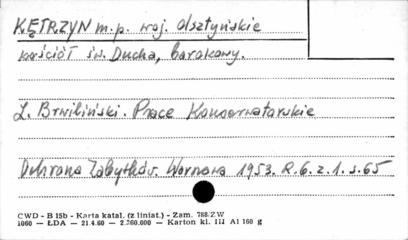 KĘTRZYN m.p. woj. olsztyńskie
kościół św. Ducha, barokowy.
L. Brwiliński. Prace Konserwatorskie
Ochrona Zabytków. Warszawa 1953. R.6. z.1. s.65
CWD - B 15b - Karta katal. (z liniat.) - Zam. 788/ZW
1060 — ŁDA — 21.4.60 — 2.260.000 — Karton kl. III A1 160 g